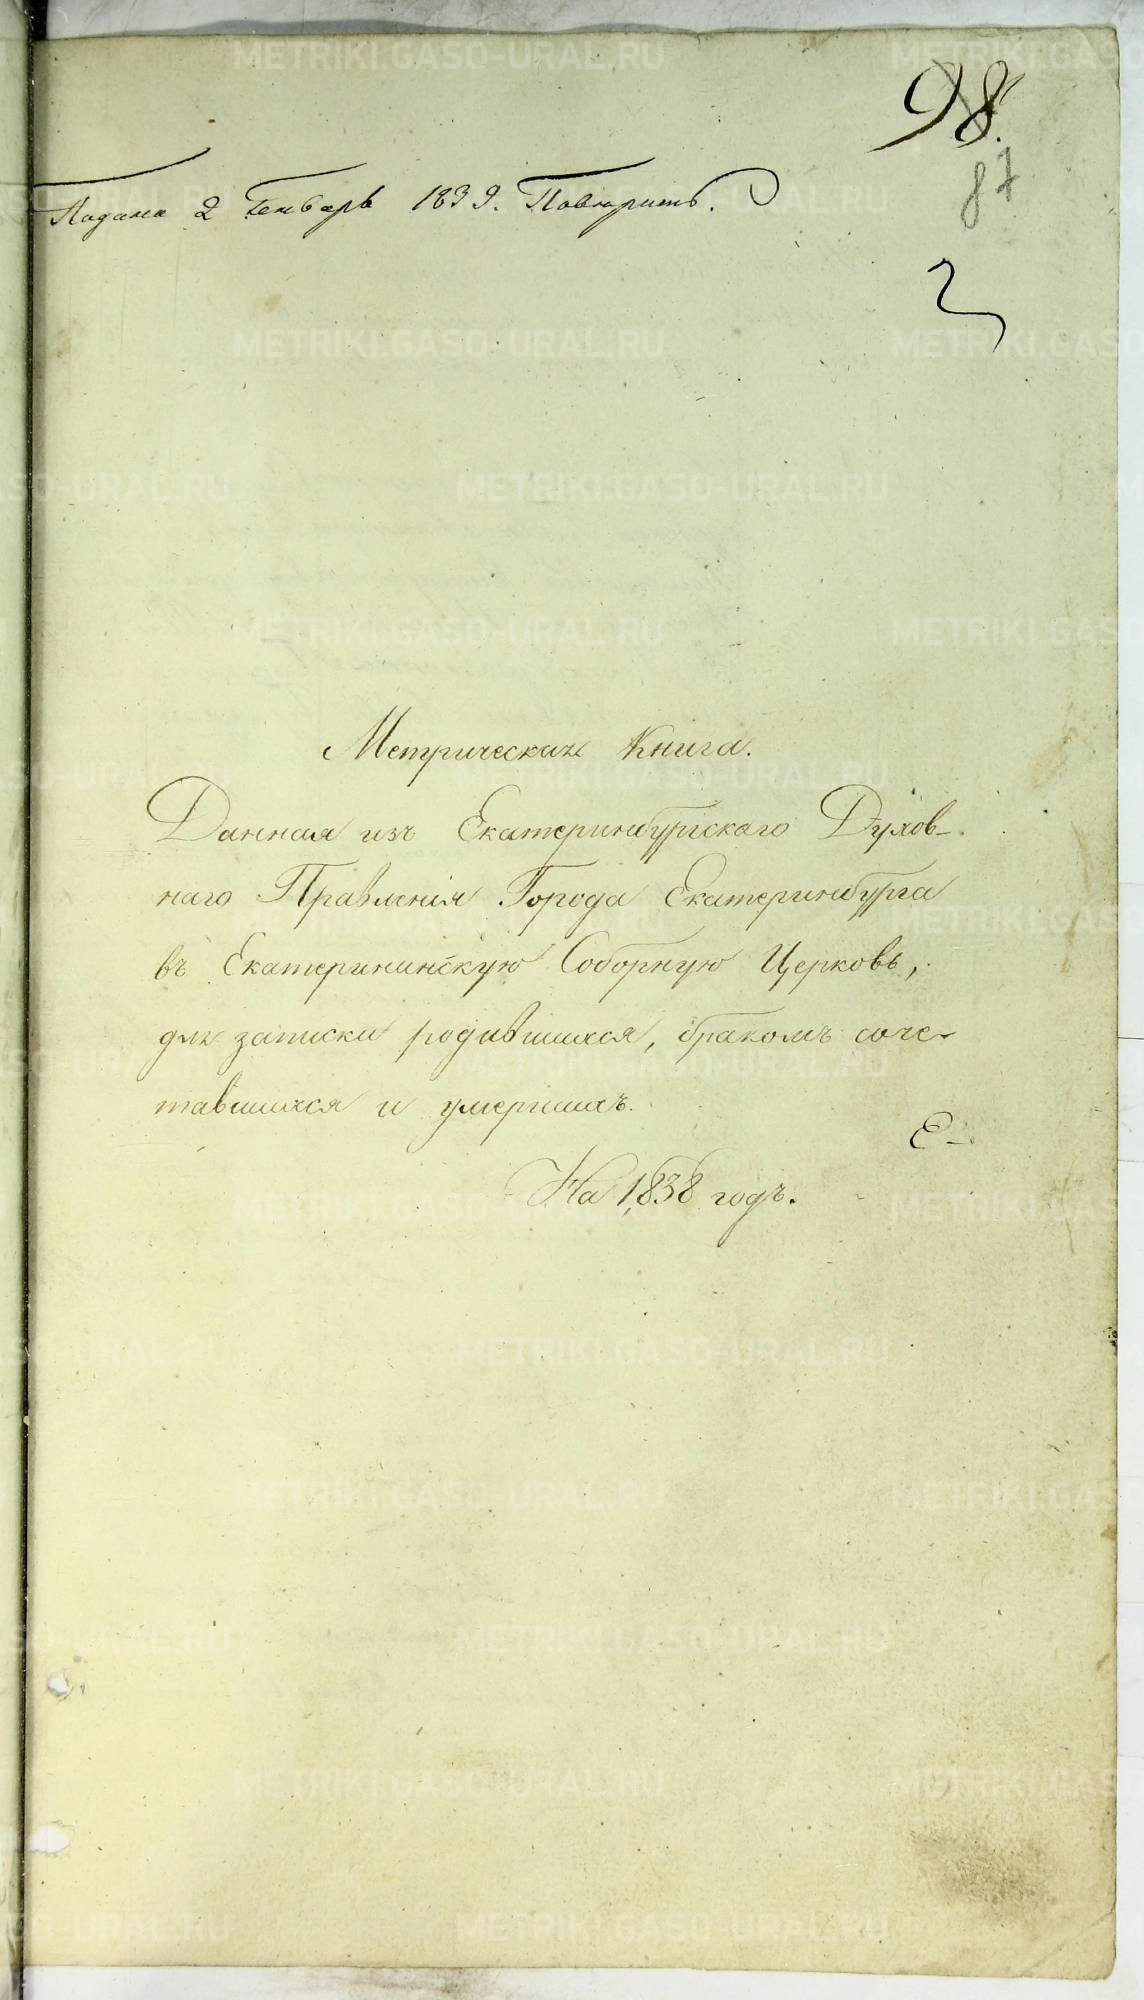 98.
87
Подана 2 Генваря 1839. Поверить.
Метрическая Книга.
Данная изъ Екатеринбургскаго Духов-
наго Правленія Города Екатеринбурга
въ Екатерининскую Соборную Церковь,
для записки родившихся, бракомъ соче-
тавшихся и умершихъ.
На 1838 годъ.
METRIKI.GASO-URAL.RU